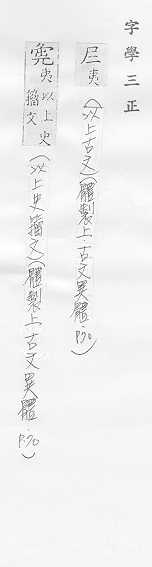 字學三正
𡰥夷(以上古文)(體製上·古文異體·P.70)
夷以上史籀文(以上史籀文)(體製上·古文異體·P.70)